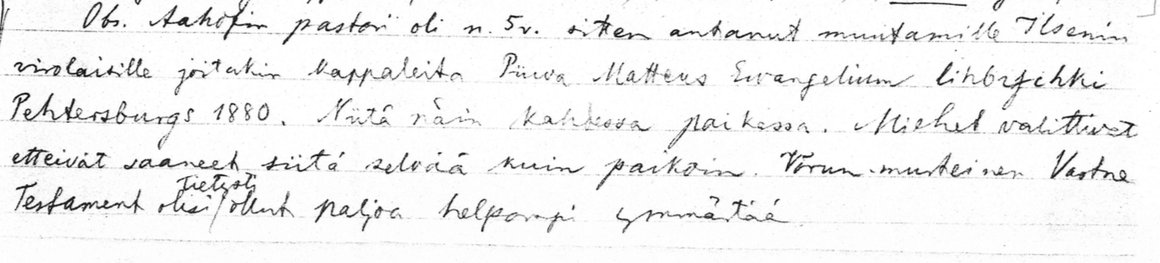 Obs. Aahofin pastori oli n. 5v. sitten antanut muutamille Ilsenin
virolaisille joitakin kappaleita Püwa Matteus Ewangelium lihbzschki
Pehtersburgs 1880. Niitä näin kahdessa paikassa. Miehet valittivat
etteivät saaneet siitä selvää kuin paikoin. Võrun-murteinen Vastne
Testament olisi tietysti ollut paljoa helpompi ymmärtää